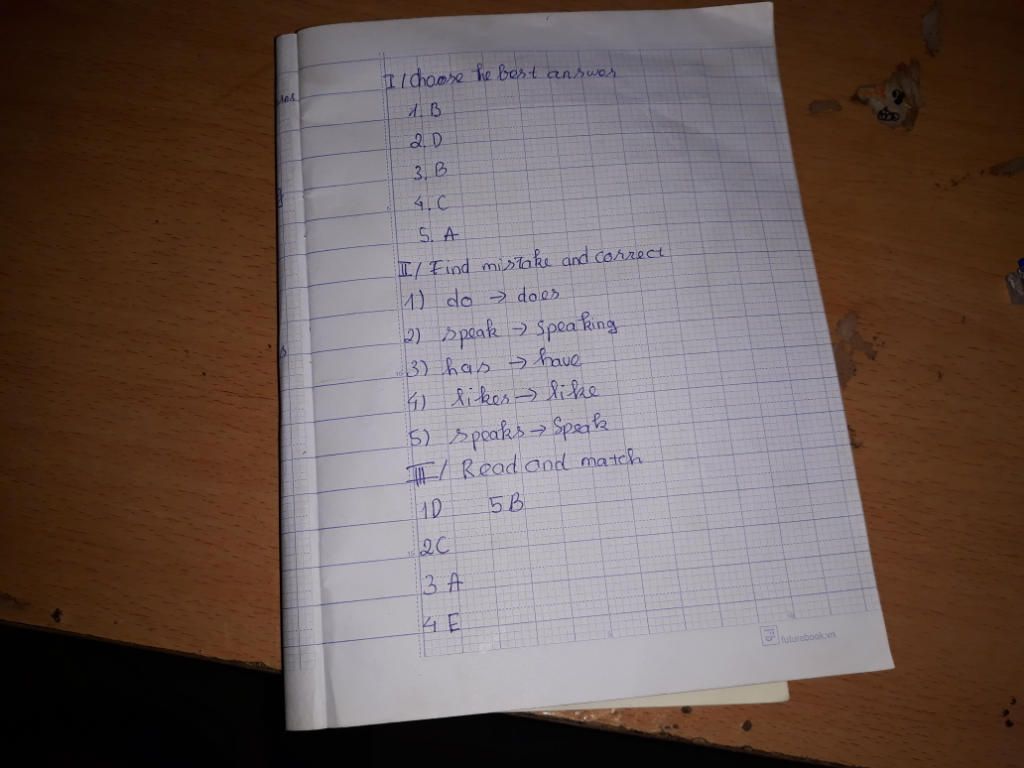 I/ Choose he Best answer
1. B
2. D
3. B
4. C
5. A
II/ Find mistake and correct
1) do → does
2) speak → speaking
3) has → have
4) likes → like
5) speaks → Speak
III/ Read and match
1D 5B
2C
3 A
4 E
futurebook.vn